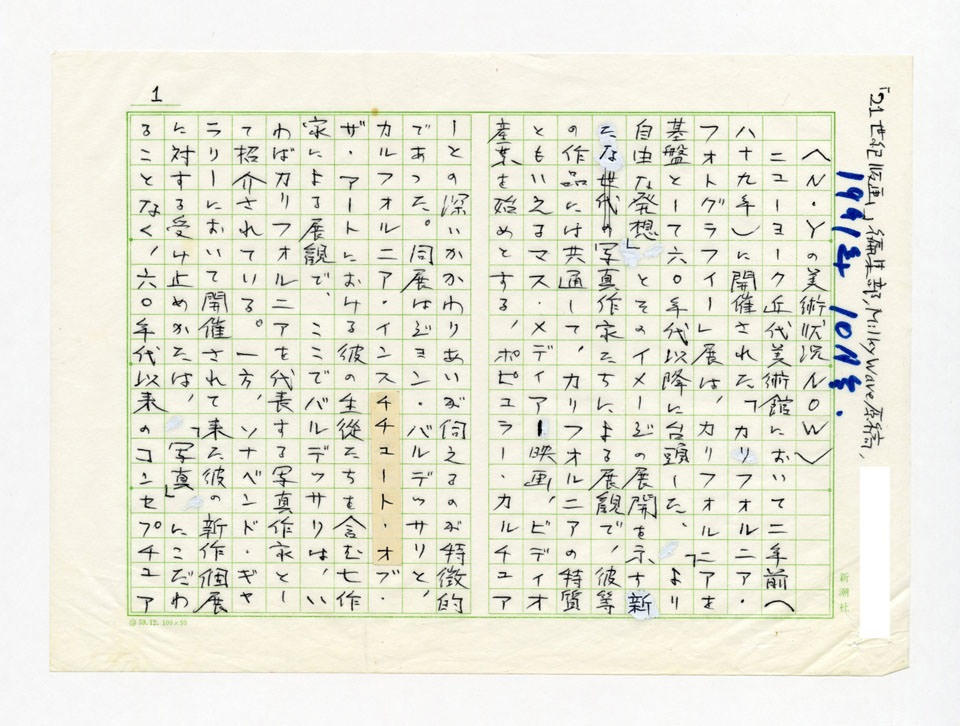 「21世紀版画」編集部, Milky Wave原稿,
1991年 10月号.
1
〈N・Yの美術状況NOW〉
ニューヨーク近代美術館において二年前(
八十九年)に開催された「カリフォルニア・
フォトグラフィー」展は、カリフォルニアを
基盤として六〇年代以降に台頭した、より
自由な発想」とそのイメージの展開を示す新
たな世代の写真作家たちによる展観で、彼等
の作品には共通して、カリフォルニアの特質
ともいえるマス・メディアー映画,ビディオ
産業を始めとする、ポピュラー・カルチュア
ーとの深いかかわりあいが伺えるのが特徴的
であった。同展はジョン・バルデッサリと、
カルフォルニア・インスチチュート・オブ・
ザ・アートにおける彼の生徒たちを含む七作
家による展観で、ここでバルデッサリは、い
わばカリフォルニアを代表する写真作家とし
て招介されている。一方,ソナベンド・ギャ
ラリーにおいて開催されて来た彼の新作個展
に対する受け止めかたは,「写真」にこだわ
ることなく,六〇年代以来のコンセプチュア
新潮社
59.12.100×50